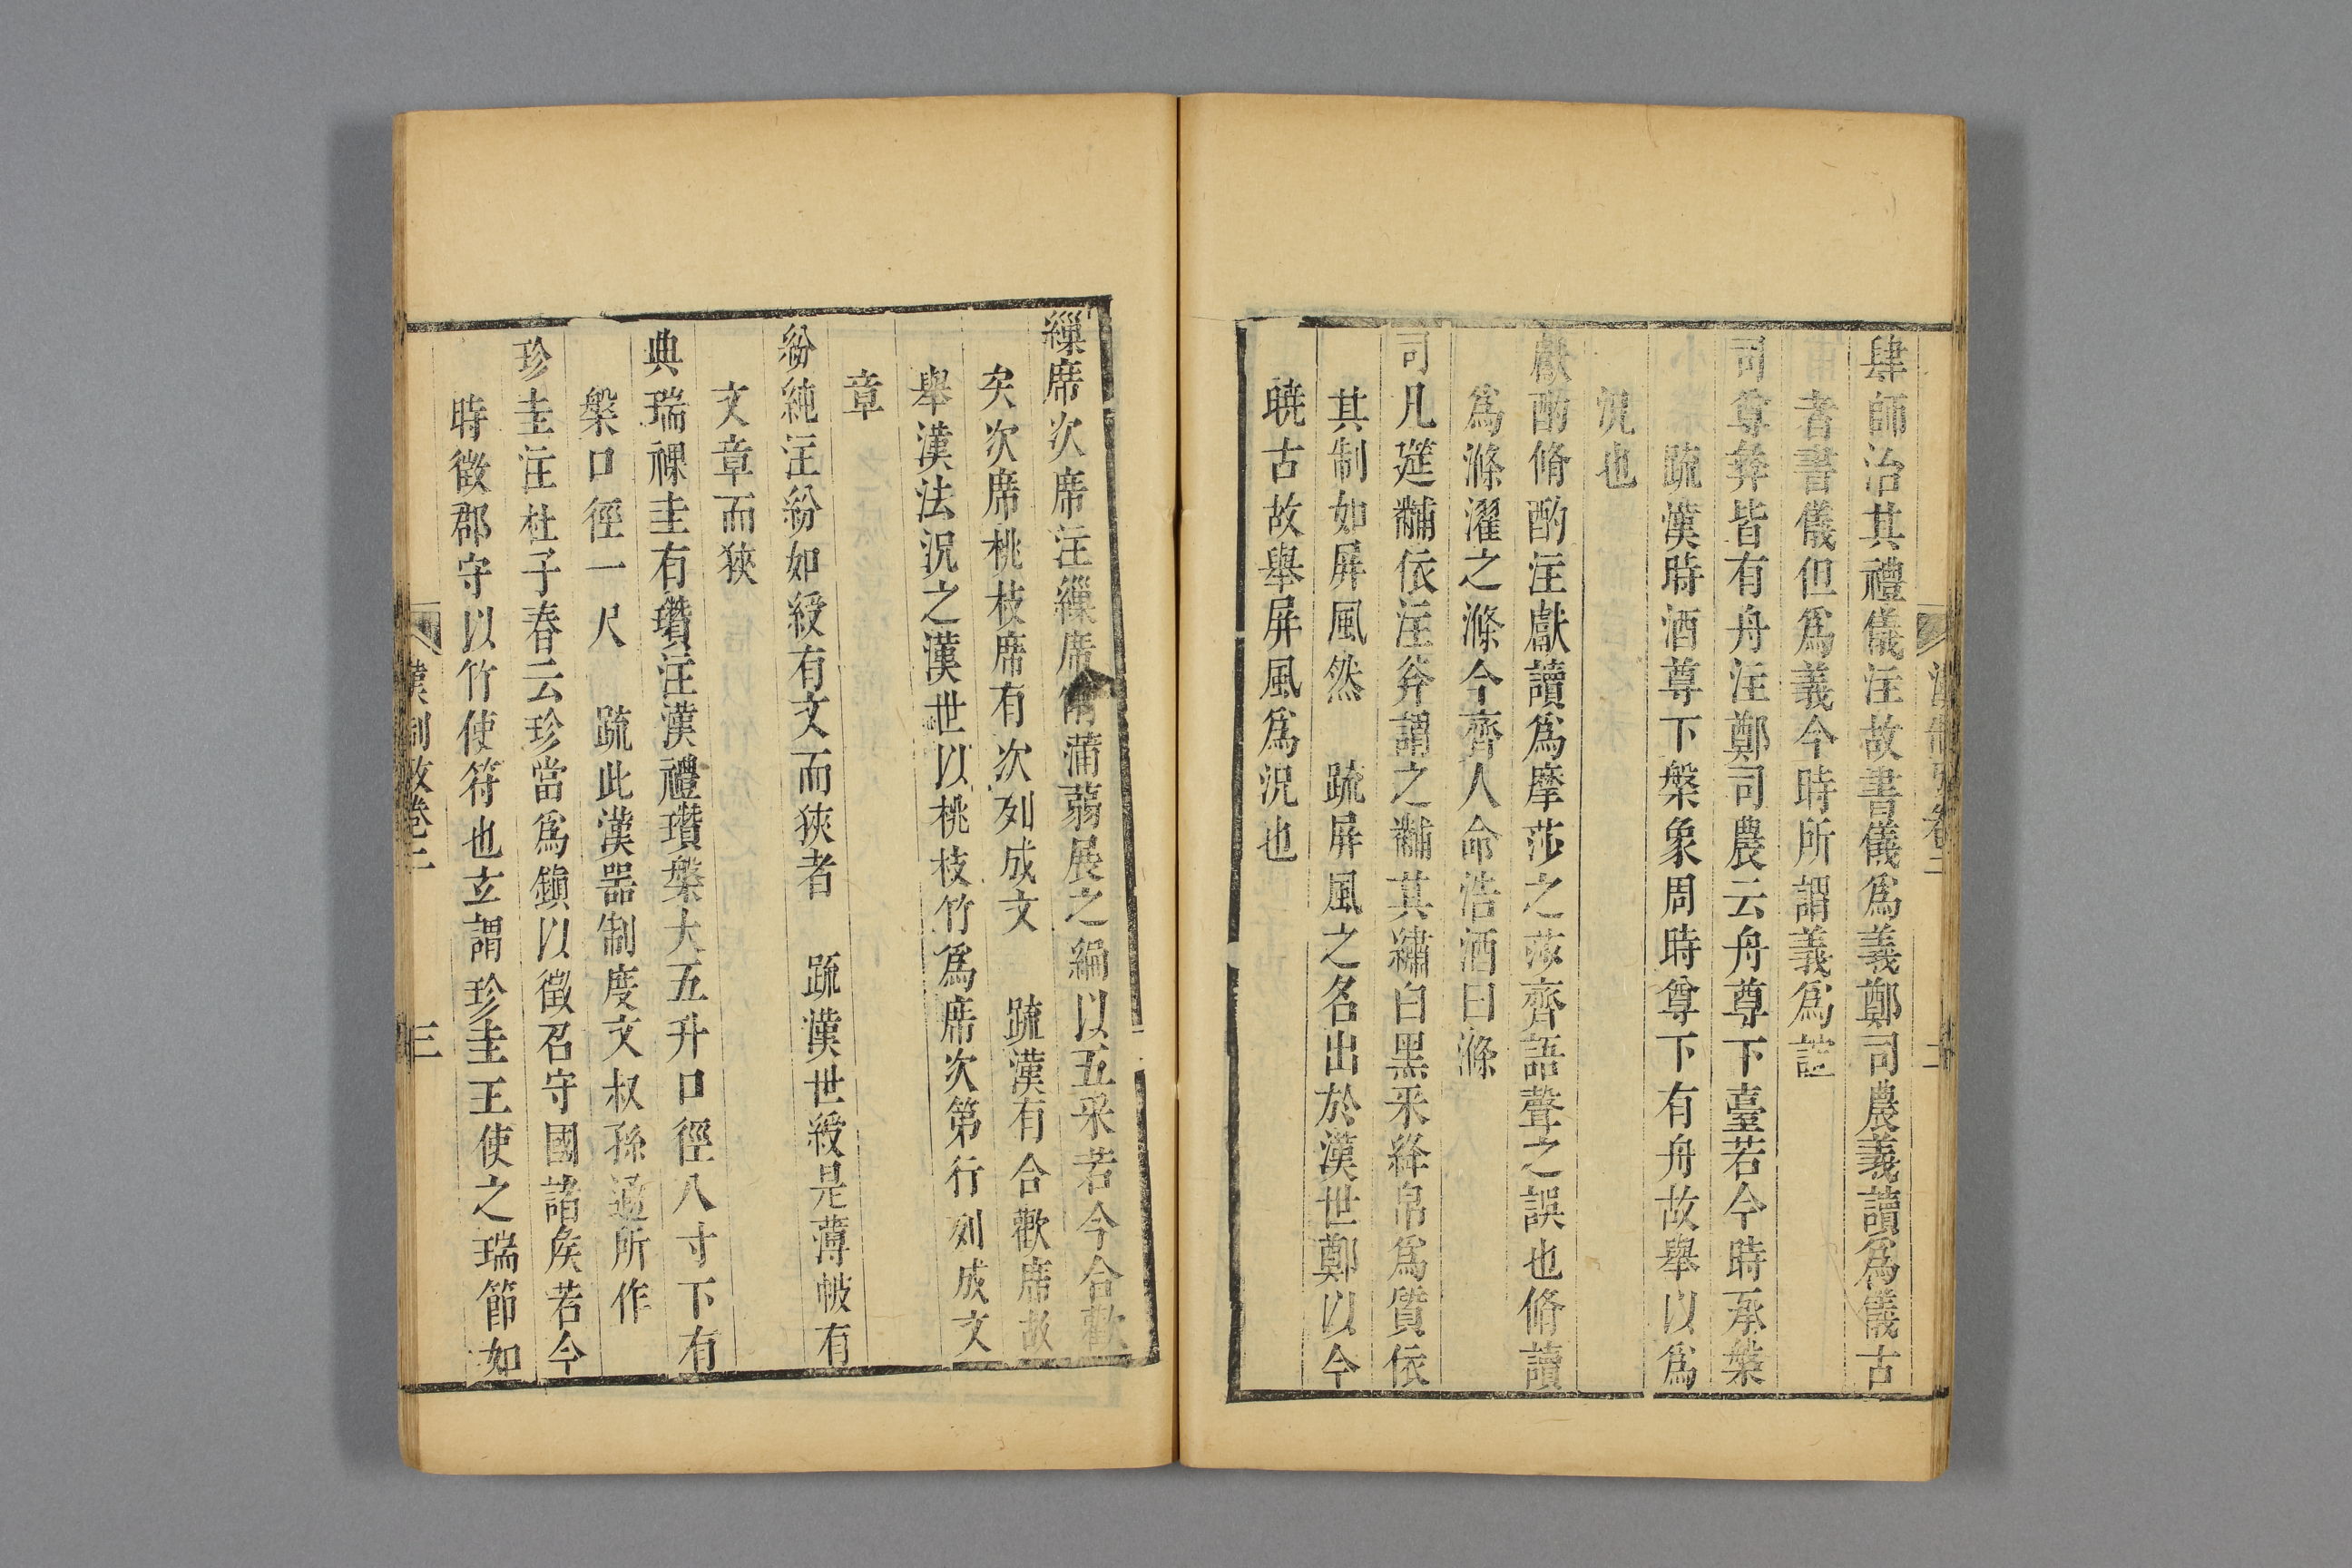 漢制攷卷二 二
肆師治其禮儀注故書儀爲義鄭司農義讀爲儀古
者書儀但爲義今時所謂義爲誼
司尊彝皆有舟注鄭司農云舟尊下臺若今時承槃
疏漢時酒尊下槃象周時尊下有舟故舉以爲
況也
獻酌脩酌注獻讀爲摩莎之莎齊語聲之誤也脩讀
爲滌濯之滌今齊人命浩酒曰滌
司几筵黼依注斧謂之黼其繡白黑采絳帛爲質依
其制如屏風然 疏屏風之名出於漢世鄭以今
曉古故舉屏風爲況也
繅席次席注繅席削蒲蒻展之編以五采若今合歡
矣次席桃枝席有次列成文 疏漢有合歡席故
舉漢法況之漢世以桃枝竹爲席次第行列成文
章
紛純注紛如綬有文而狹者 疏漢世綬是薄帔有
文章而狹
典瑞祼圭有瓚注漢禮瓚槃大五升口徑八寸下有
槃口徑一尺 疏此漢器制度文叔孫通所作
珍圭注杜子春云珍當爲鎭以徵召守國諸矦若今
時徵郡守以竹使符也玄謂珍圭王使之瑞節如
漢制攷卷二 三